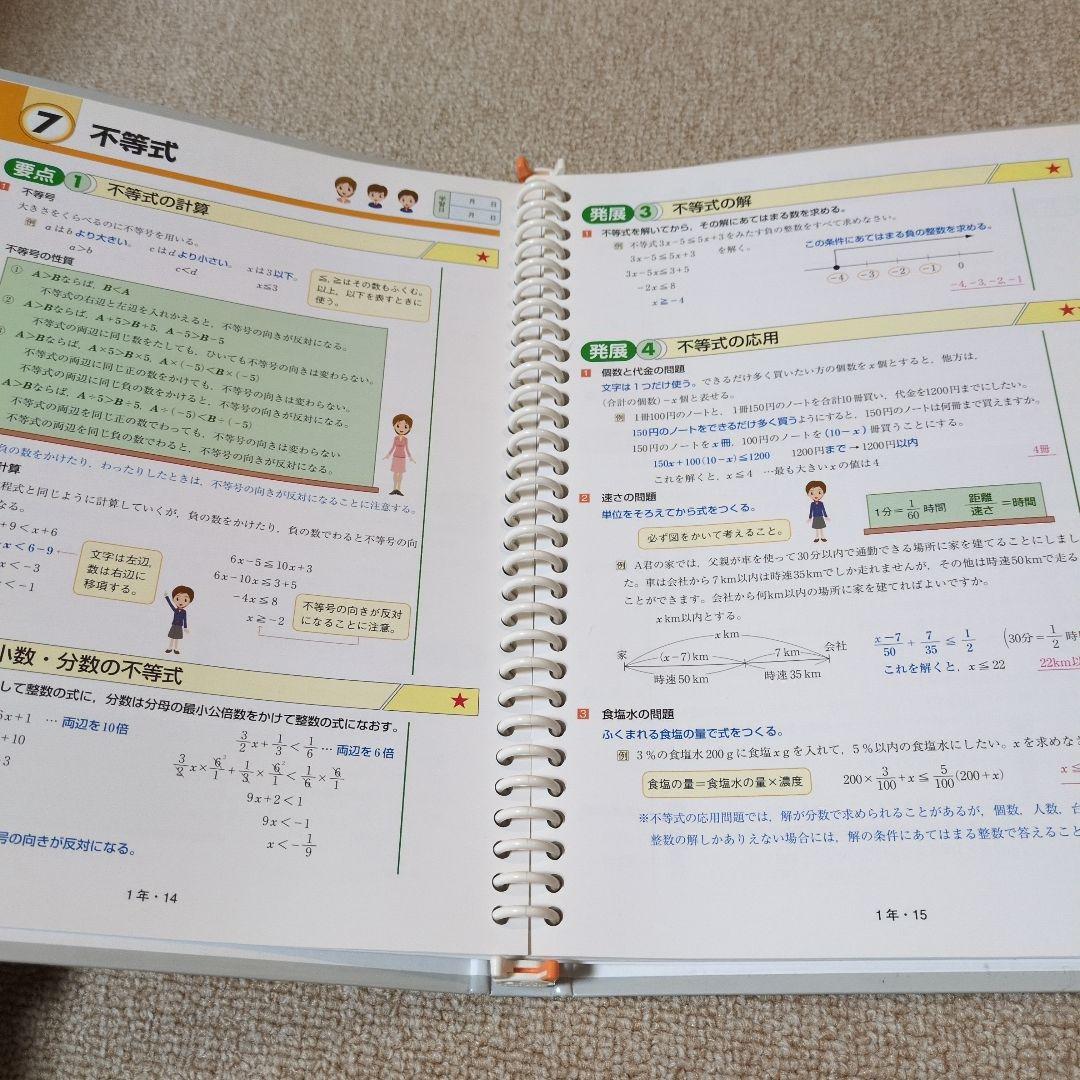 7 不等式
学習日 月 日
月 日
要点 1 不等式の計算 ★
1 不等号
大きさをくらべるのに不等号を用いる。
例 aはbより大きい。 cはdより小さい。 xは3以下。
a>b c<d x≦3
≦,≧はその数もふくむ。
以上, 以下を表すときに
使う。
不等号の性質
① A>Bならば, B<A
不等式の右辺と左辺を入れかえると, 不等号の向きが反対になる。
② A>Bならば, A+5>B+5, A-5>B-5
不等式の両辺に同じ数をたしても, ひいても不等号の向きは変わらない。
A>Bならば, A×5>B×5, A×(-5)<B×(-5)
不等式の両辺に同じ正の数をかけても, 不等号の向きは変わらない。
不等式の両辺に同じ負の数をかけると, 不等号の向きが反対になる。
A>Bならば, A÷5>B÷5, A÷(-5)<B÷(-5)
不等式の両辺を同じ正の数でわっても, 不等号の向きは変わらない
不等式の両辺を同じ負の数でわると, 不等号の向きが反対になる。
負の数をかけたり, わったりしたときは, 不等号の向きが反対になることに注意する。
計算
程式と同じように計算していくが, 負の数をかけたり, 負の数でわると不等号の向
なる。
+9<x+6
x<6-9
x<-3
<-1
文字は左辺,
数は右辺に
移項する。
6x-5≦10x+3
6x-10x≦3+5
-4x≦8
x≧-2
不等号の向きが反対
になることに注意。
小数・分数の不等式 ★
して整数の式に, 分数は分母の最小公倍数をかけて整数の式になおす。
6x+1 … 両辺を10倍
+10
3
号の向きが反対になる。
3/2x+1/3<1/6 … 両辺を6倍
3/2x×6/1+1/3×6/1<1/6×6/1
9x+2<1
9x<-1
x<-1/9
1年・14
発展 3 不等式の解 ★
1 不等式を解いてから, その解にあてはまる数を求める。
例 不等式3x-5≦5x+3をみたす負の整数をすべて求めなさい。
3x-5≦5x+3 を解く。
3x-5x≦3+5
-2x≦8
x≧-4
この条件にあてはまる負の整数を求める。
-4 -3 -2 -1 0
-4, -3, -2, -1
発展 4 不等式の応用 ★
1 個数と代金の問題
文字は1つだけ使う。できるだけ多く買いたい方の個数をx個とすると, 他方は,
(合計の個数)-x個と表せる。
例 1冊100円のノートと, 1冊150円のノートを合計10冊買い, 代金を1200円までにしたい。
150円のノートをできるだけ多く買うようにすると, 150円のノートは何冊まで買えますか。
150円のノートをx冊, 100円のノートを(10-x)冊買うことにする。
150x+100(10-x)≦1200 1200円まで→1200円以内
これを解くと, x≦4 …最も大きいxの値は4
4冊
2 速さの問題
単位をそろえてから式をつくる。
必ず図をかいて考えること。
1分=1/60時間 距離/速さ=時間
例 A君の家では, 父親が車を使って30分以内で通勤できる場所に家を建てることにしまし
た。車は会社から7km以内は時速35kmでしか走れませんが, その他は時速50kmで走る
ことができます。会社から何km以内の場所に家を建てればよいですか。
xkm以内とする。
xkm
家 (x-7)km 7km 会社
時速50km 時速35km
x-7/50+7/35≦1/2 (30分=1/2時
これを解くと, x≦22
22km以
3 食塩水の問題
ふくまれる食塩の量で式をつくる。
例 3%の食塩水200gに食塩xgを入れて, 5%以内の食塩水にしたい。xを求めなさ
食塩の量=食塩水の量×濃度
200×3/100+x≦5/100(200+x)
x≦
※不等式の応用問題では, 解が分数で求められることがあるが, 個数, 人数, 台
整数の解しかありえない場合には, 解の条件にあてはまる整数で答えること
1年・15